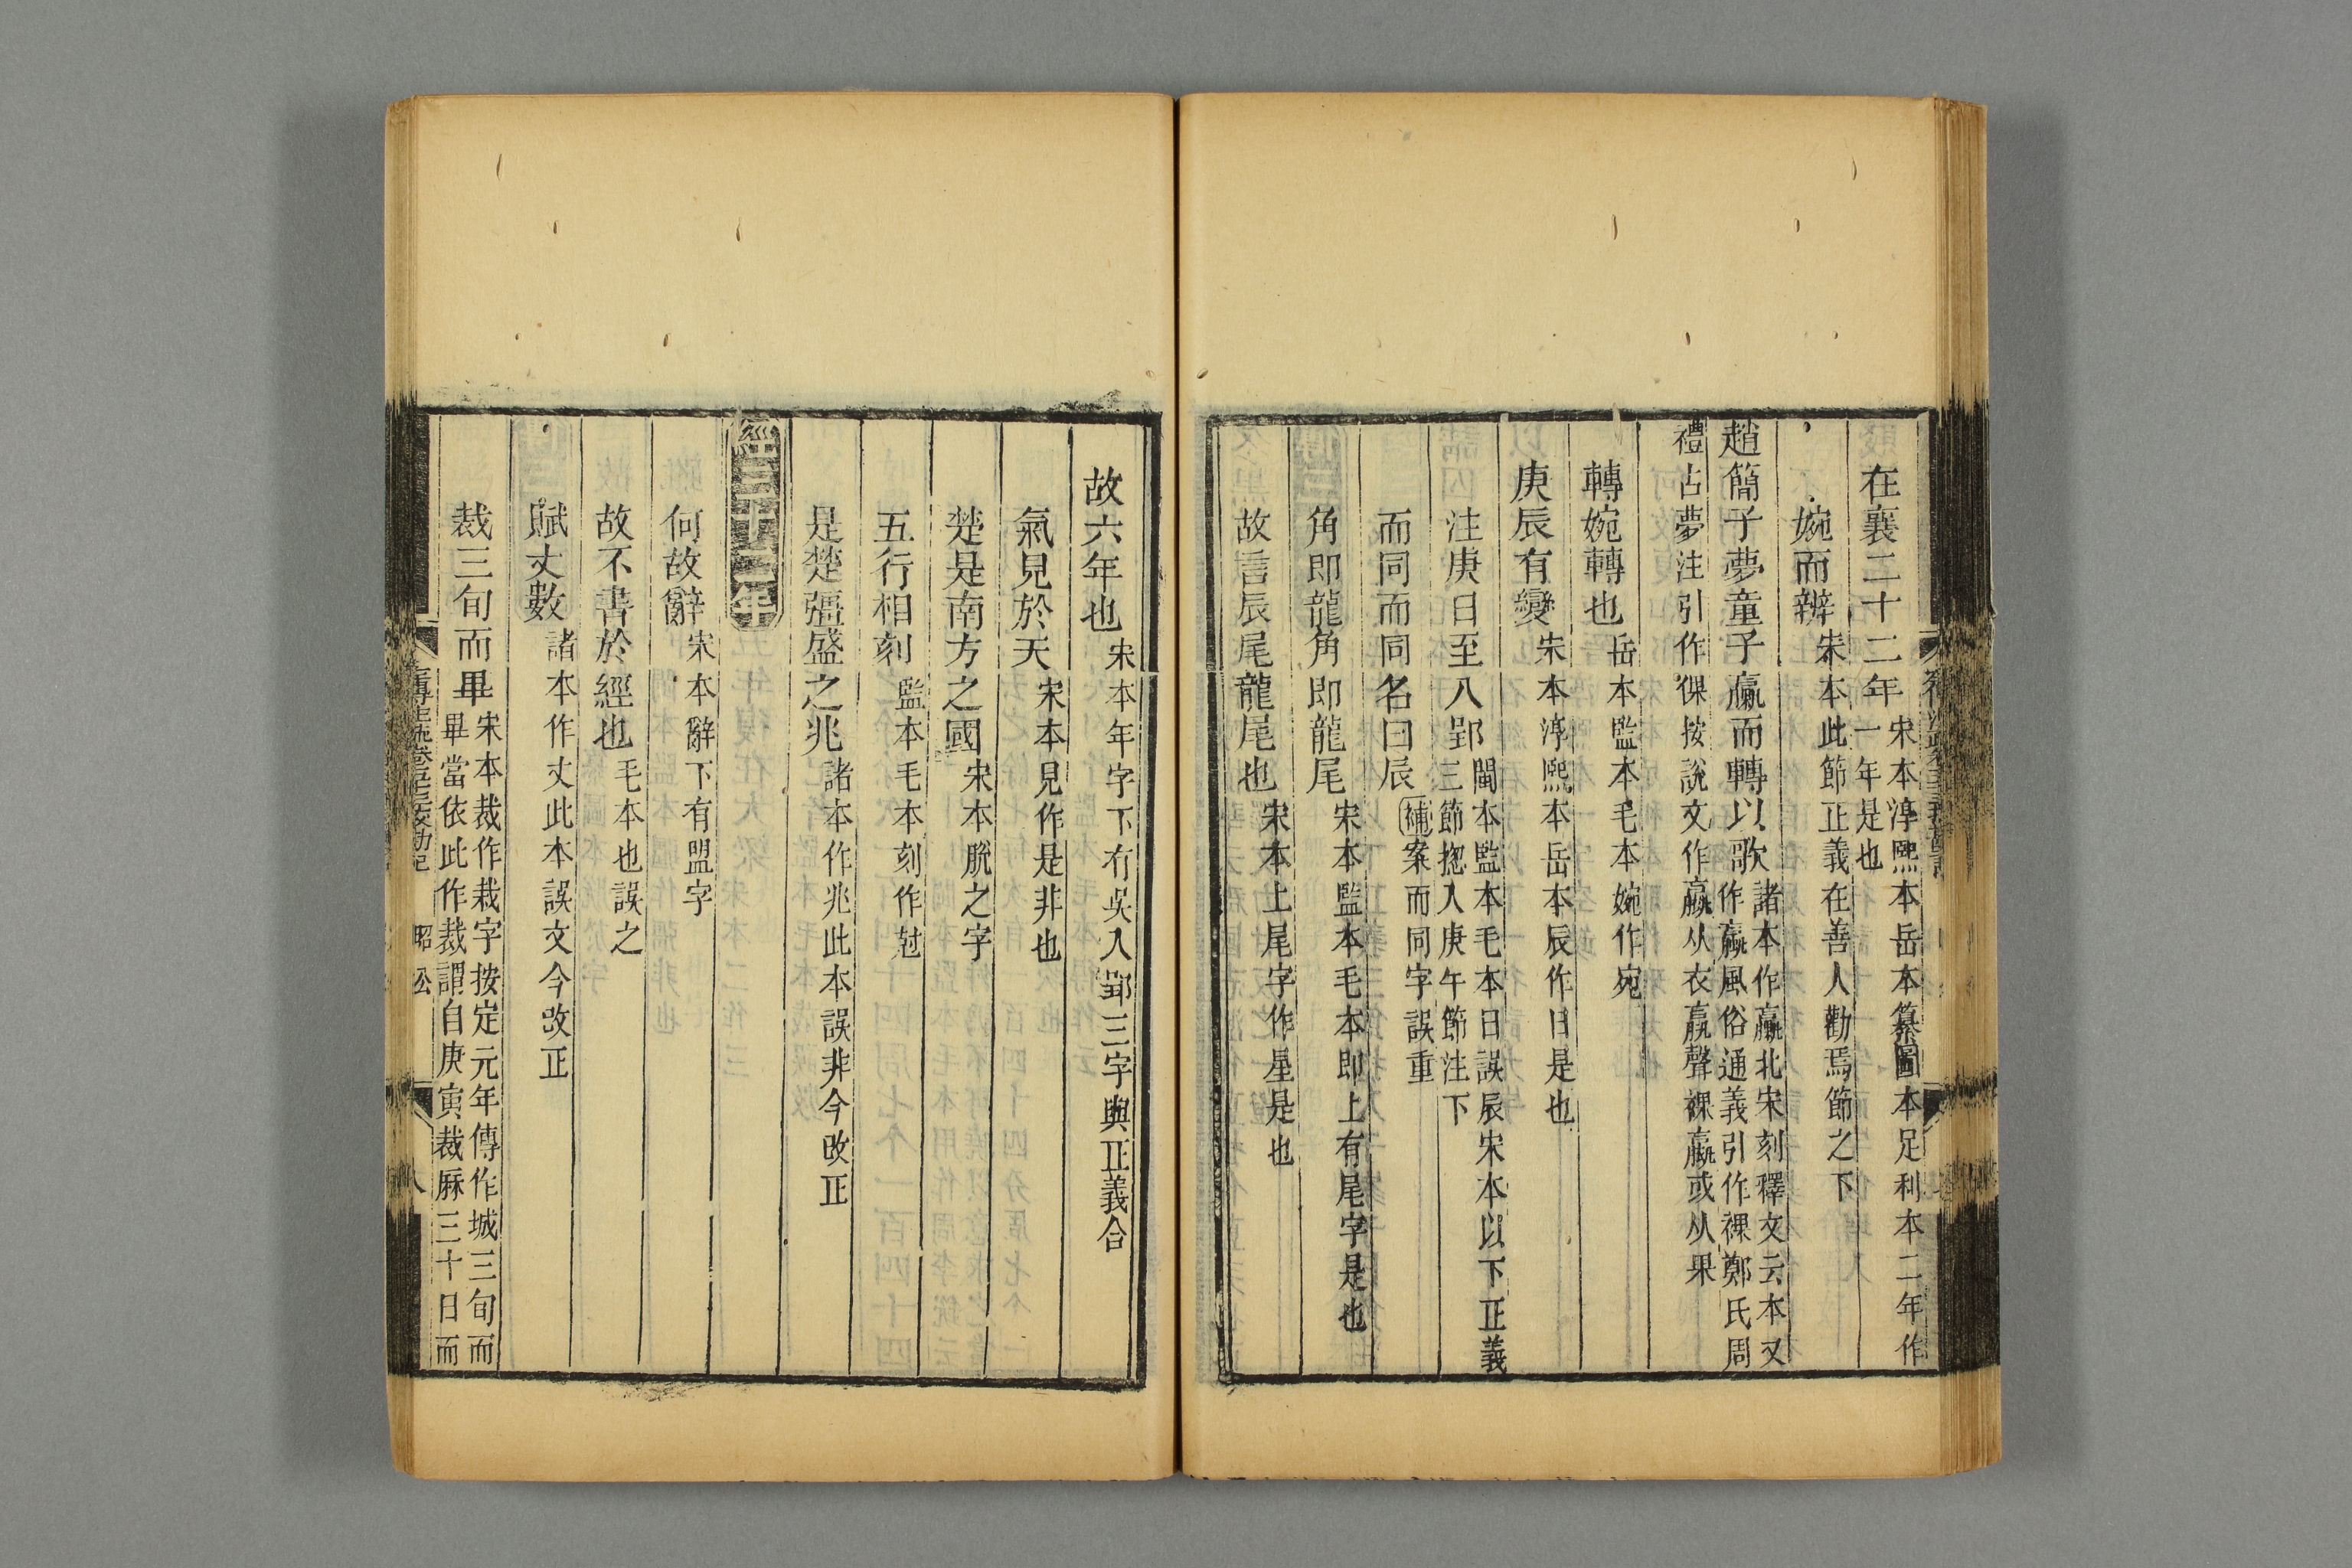 在襄二十二年宋本淳熙本岳本纂圖本足利本二年作一年是也
婉而辨宋本此節正義在善人勸焉節之下
趙簡子夢童子臝而轉以歌諸本作臝北宋刻釋文云本又作臝風俗通義引作裸鄭氏周
禮占夢注引作倮按說文作臝从衣𦝠聲裸臝或从果
轉婉轉也岳本監本毛本婉作宛
庚辰有變宋本淳熙本岳本辰作日是也
注庚日至入郢閩本監本毛本日誤辰宋本以下正義三節揔入庚午節注下
而同而同名曰辰補案而同字誤重
角即龍角即龍尾宋本監本毛本即上有尾字是也
故言辰尾龍尾也宋本上尾字作星是也
故六年也宋本年字下有吳入郢三字與正義合
氣見於天宋本見作是非也
楚是南方之國宋本脫之字
五行相刻監本毛本刻作尅
是楚彊盛之兆諸本作兆此本誤非今改正
經三十二年
何故辭宋本辭下有盟字
故不書於經也毛本也誤之
賦丈數諸本作丈此本誤文今改正
裁三旬而畢宋本裁作栽字按定元年傳作城三旬而畢當依此作裁謂自庚寅裁厤三十日而
昭公
八